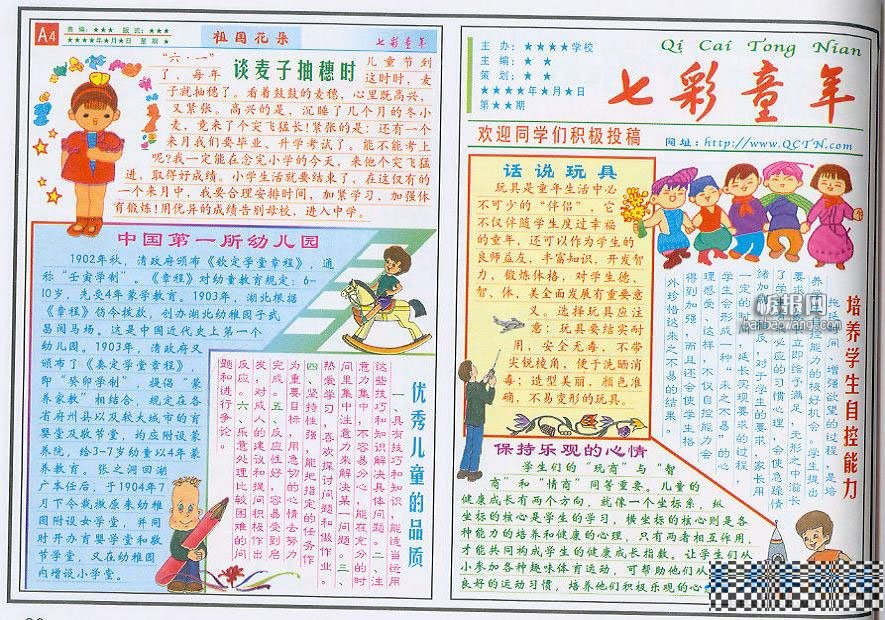 A4
责编：★★★ 版式：★★★
★★★★年★月★日 星期★
祖国花朵
七彩童年
谈麦子抽穗时
“六·一”儿童节到
了，每年这时时，麦
子就抽穗了。看着鼓鼓的麦穗，心里既高兴，
又紧张。高兴的是，沉睡了几个月的冬小
麦，竟来了个突飞猛长！紧张的是：还有一个
来月我们要毕业、升学考试了。能不能考上
呢？我一定能在念完小学的今天，来他个突飞猛
进，取得好成绩。小学生活就要结束了，在这仅有的
一个来月中，我要合理安排时间，加紧学习，加强体
育锻炼！用优异的成绩告别母校，进入中学。
中国第一所幼儿园
1902年秋，清政府颁布《钦定学堂章程》，通
称“壬寅学制”。《章程》对幼童教育规定：6-
10岁，先受4年蒙学教育。1903年，湖北根据
《章程》仿令拨款，创办湖北幼稚园于武
昌阅马场。这是中国近代史上第一个
幼儿园，1903年，清政府又
颁布了《奏定学堂章程》，
即“癸卯学制”，提倡“蒙
养家教”相结合，规定在各
省府州县以及较大城市的育
婴堂及敬节堂，均应附设蒙
养院，给3-7岁幼童以4年蒙
养教育。张之洞回湖
广本任后，于1904年7
月下令裁撤原来幼稚
园附设女学堂，并同
时开办育婴学堂和敬
节学堂，又在幼稚园
内增设小学堂。
优秀儿童的品质
一、具有技巧和知识，能适当运用
这些技巧和知识解决具体问题。二、注
意力集中，不容易分心，能在充分的时
间里集中注意力来解决某一问题。三、
热爱学习，喜欢探讨问题和做作业。
四、坚持性强，能把指定的任务作
为重要目标，用急切的心情去努力
完成。五、反应性好，容易受到启
发，对成人的建议和提问积极作出
反应。六、乐意处理比较困难的问
题和进行争论。
主办：★★★★学校
主编：★ ★
策划：★ ★
★★★★年★月★日
第★★期
Qi Cai Tong Nian
七彩童年
欢迎同学们积极投稿
网址：http://www.QCTN.com
话说玩具
玩具是童年生活中必
不可少的“伴侣”，它
不仅伴随学生度过幸福
的童年，还可以作为学生的
良师益友，丰富知识，开发智
力，锻炼体格，对学生德、
智、体、美全面发展有重要意
义。选择玩具应注
意：玩具要结实耐
用，安全无毒，不带
尖锐棱角，便于洗晒消
毒；造型美丽，颜色准
确，不易变形的玩具。
培养学生自控能力
拖延时间、增强欲望的过程，是培
养学生自控能力的极好机会。学生提出
要求，立即给予满足，无形之中滋长
了学生有必应的习惯心理，会使急躁情
绪加剧。反，对于学生的要求，家长用
一定的时间，延长实现要求的过程，
学生会形成一种“来之不易”的心
理感受，这样，不仅自控能力会
得到加强，而且还会使学生格
外珍惜这来之不易的结果。
板报网
banbaowang.com
保持乐观的心情
学生们的“玩商”与“智
商”和“情商”同等重要。儿童的
健康成长有两个方向，就像一个坐标系，纵
坐标的核心是学生的学习，横坐标的核心则是各
种能力的培养和健康的心理，只有两者相互作用，
才能共同构成学生的健康成长指数。让学生们从
小参加各种趣味体育运动，可帮助他们从
良好的运动习惯，培养他们积极乐观的心